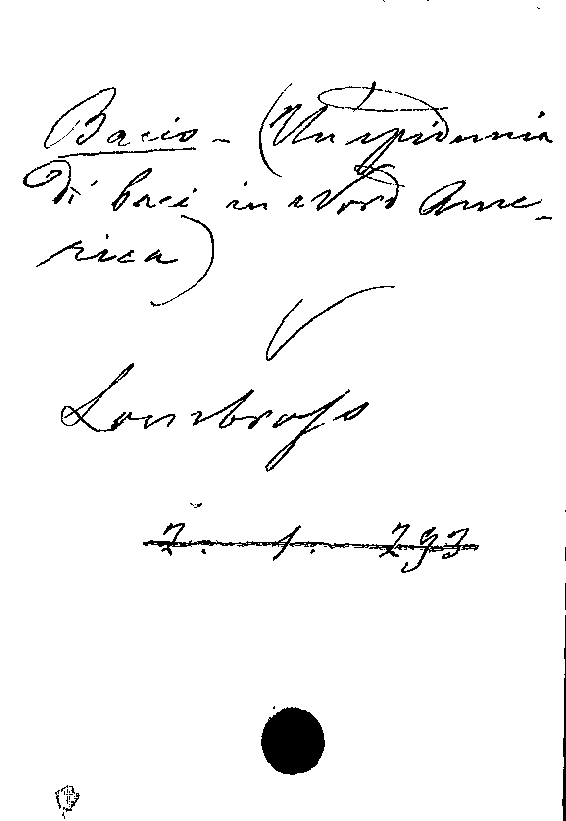 Bacio - (Un epidemia
di baci in Nord Ame-
rica)
V
Lombroso
7. 1. 293